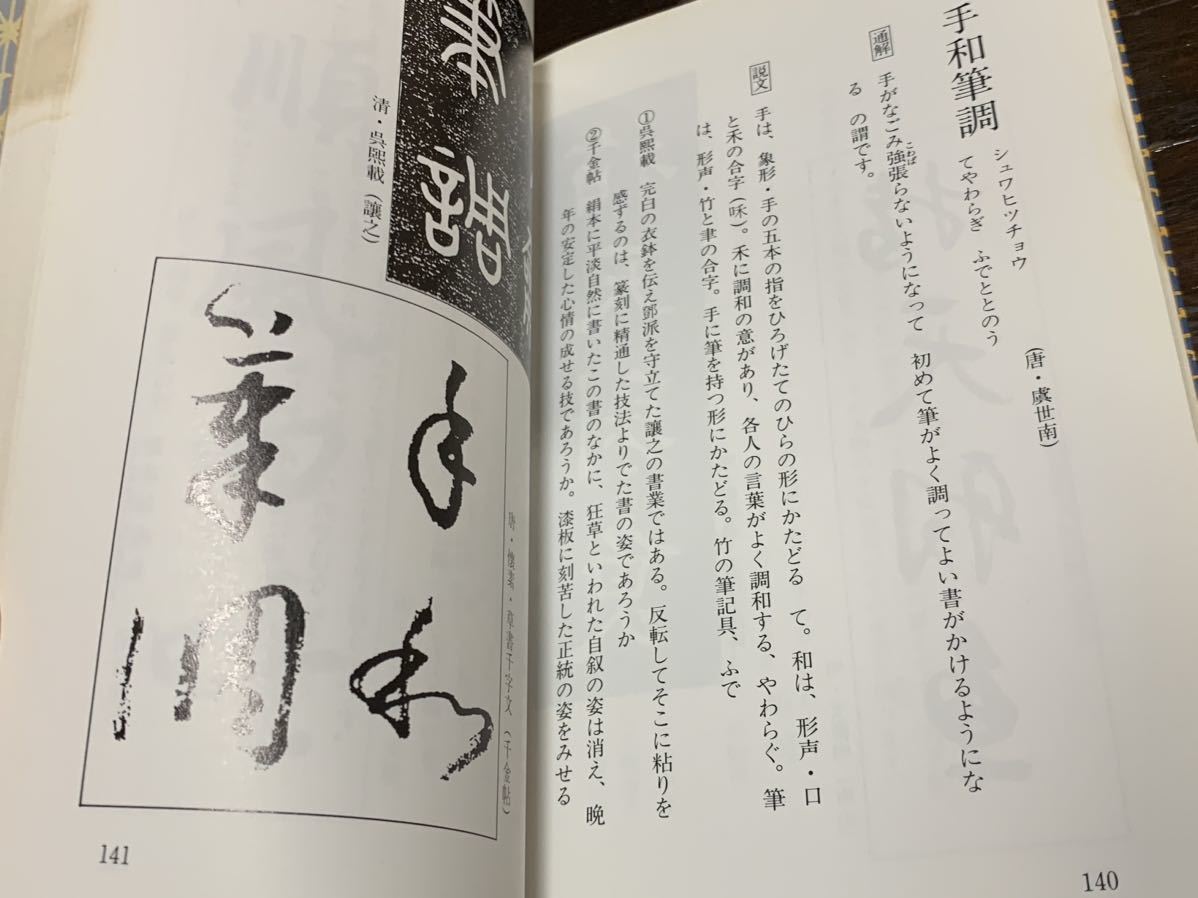 手和筆調
シュワヒツチョウ
てやわらぎ　ふでととのう
(唐・虞世南)
通解　手がなごみ強張らないようになって　初めて筆がよく調ってよい書がかけるようにな
こわば
る　の謂です。
説文　手は、象形・手の五本の指をひろげたてのひらの形にかたどる　て。和は、形声・口
と禾の合字(咊)。禾に調和の意があり、各人の言葉がよく調和する、やわらぐ。筆
は、形声・竹と聿の合字。手に筆を持つ形にかたどる。竹の筆記具、ふで
①呉熙載　完白の衣鉢を伝え鄧派を守立てた讓之の書業ではある。反転してそこに粘りを
感ずるのは、篆刻に精通した技法よりでた書の姿であろうか
②千金帖　絹本に平淡自然に書いたこの書のなかに、狂草といわれた自叙の姿は消え、晩
年の安定した心情の成せる技であろうか。漆板に刻苦した正統の姿をみせる
140
筆
調
清・呉熙載(讓之)
唐・懐素・草書千字文(千金帖)
手和
筆調
141